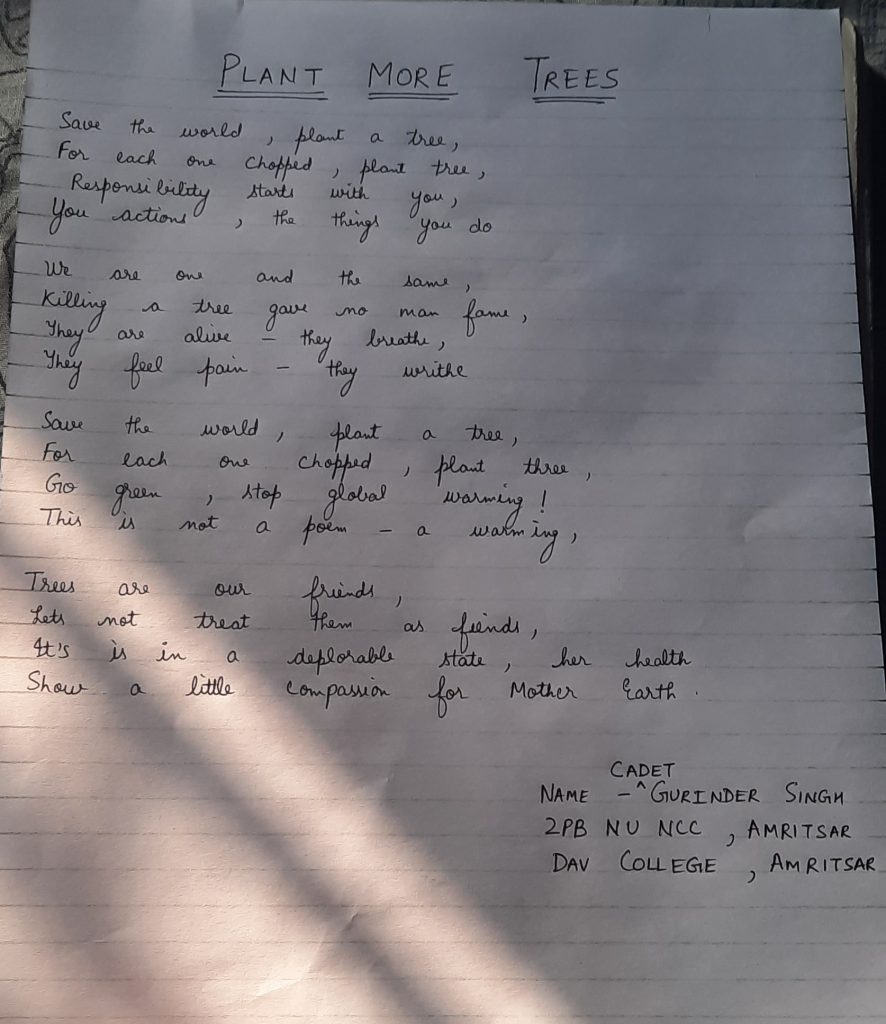 PLANT MORE TREES
Save the world , plant a tree,
For each one chopped , plant tree,
Responsibility starts with you,
You actions , the things you do
We are one and the same,
Killing a tree gave no man fame,
They are alive - they breathe,
They feel pain - they writhe
Save the world , plant a tree,
For each one chopped , plant three,
Go green , stop global warming!
This is not a poem - a warming,
Trees are our friends,
Lets not treat them as fiends,
It's is in a deplorable state, her health
Show a little compassion for Mother Earth.
CADET
NAME - ^ GURINDER SINGH
2PB NU NCC , AMRITSAR
DAV COLLEGE , AMRITSAR